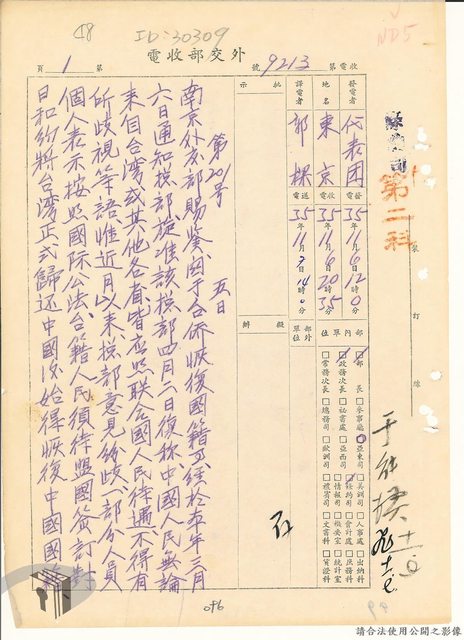 48
ID:30309
ND5
外交部收電
收電第9213號
第1頁
發電者 代表團
地名 東京
譯電者 郭棵
發電 35年11月6日12時0分
收電 35年11月6日20時35分
送電 35年11月7日14時0分
批示
擬辦
部內單位
部外單位
部長
政務次長
常務次長
參事廳
秘書處
總務司
亞東司
亞西司
歐洲司
美洲司
條約司
情報司
禮賓司
人事處
會計處
機要室
文書科
出納科
庶務科
統計室
第二科
裝
訂
線
第201號 五日
南京外交部賜鑒關于台僑恢復國籍事經於本年三月
六日通知標部旋准該標部四月二日復稱中國人民無論
來自台灣或其他各省皆應照聯合國人民待遇不得有
所歧視等語惟近月以來標部意見紛歧一部分人員
個人表示按照國际公法台籍人民須待盟國簽訂對
日和約將台灣正式歸还中國後始得恢復中國國籍
046
請合法使用公開之影像